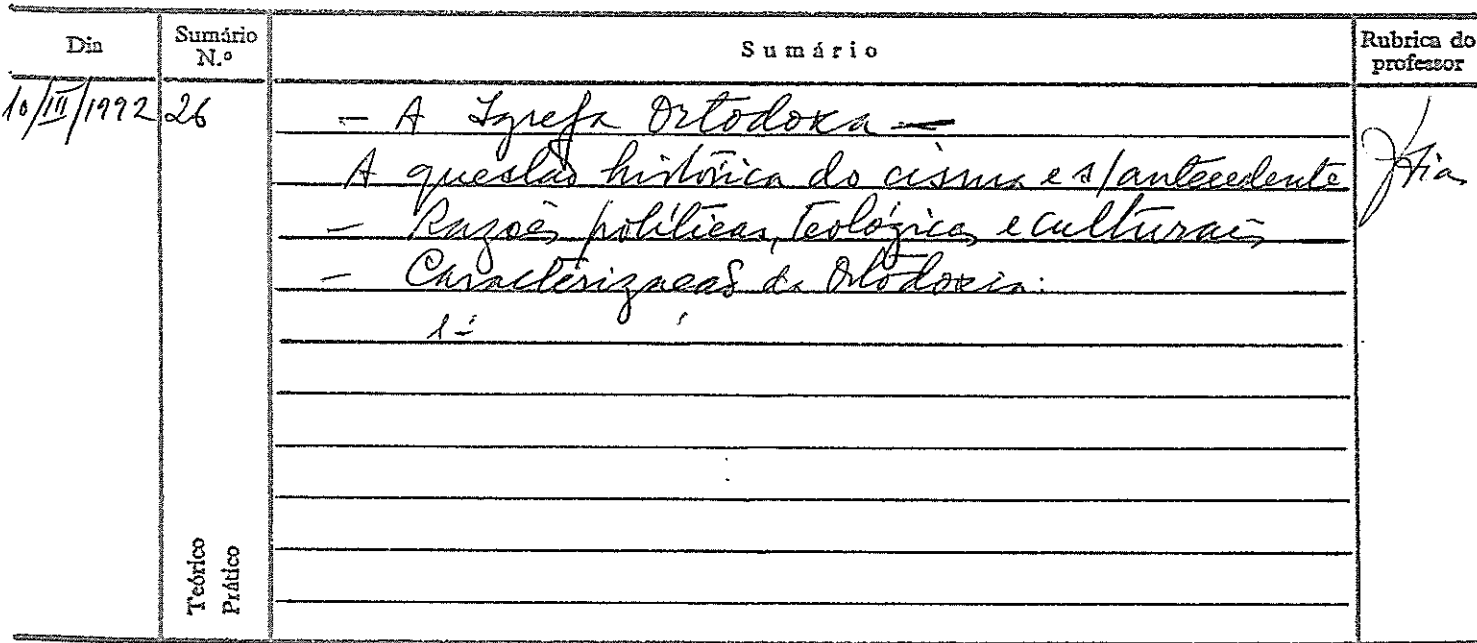 Dia
Sumário N.º
Sumário
Rubrica do professor
10/III/1992
26
- A Igreja Ortodoxa -
A questão histórica do cisma e s/antecedente
- Razões políticas, teológicas e culturais
- Caracterização da Ortodoxia:
1º
Teórico
Prático